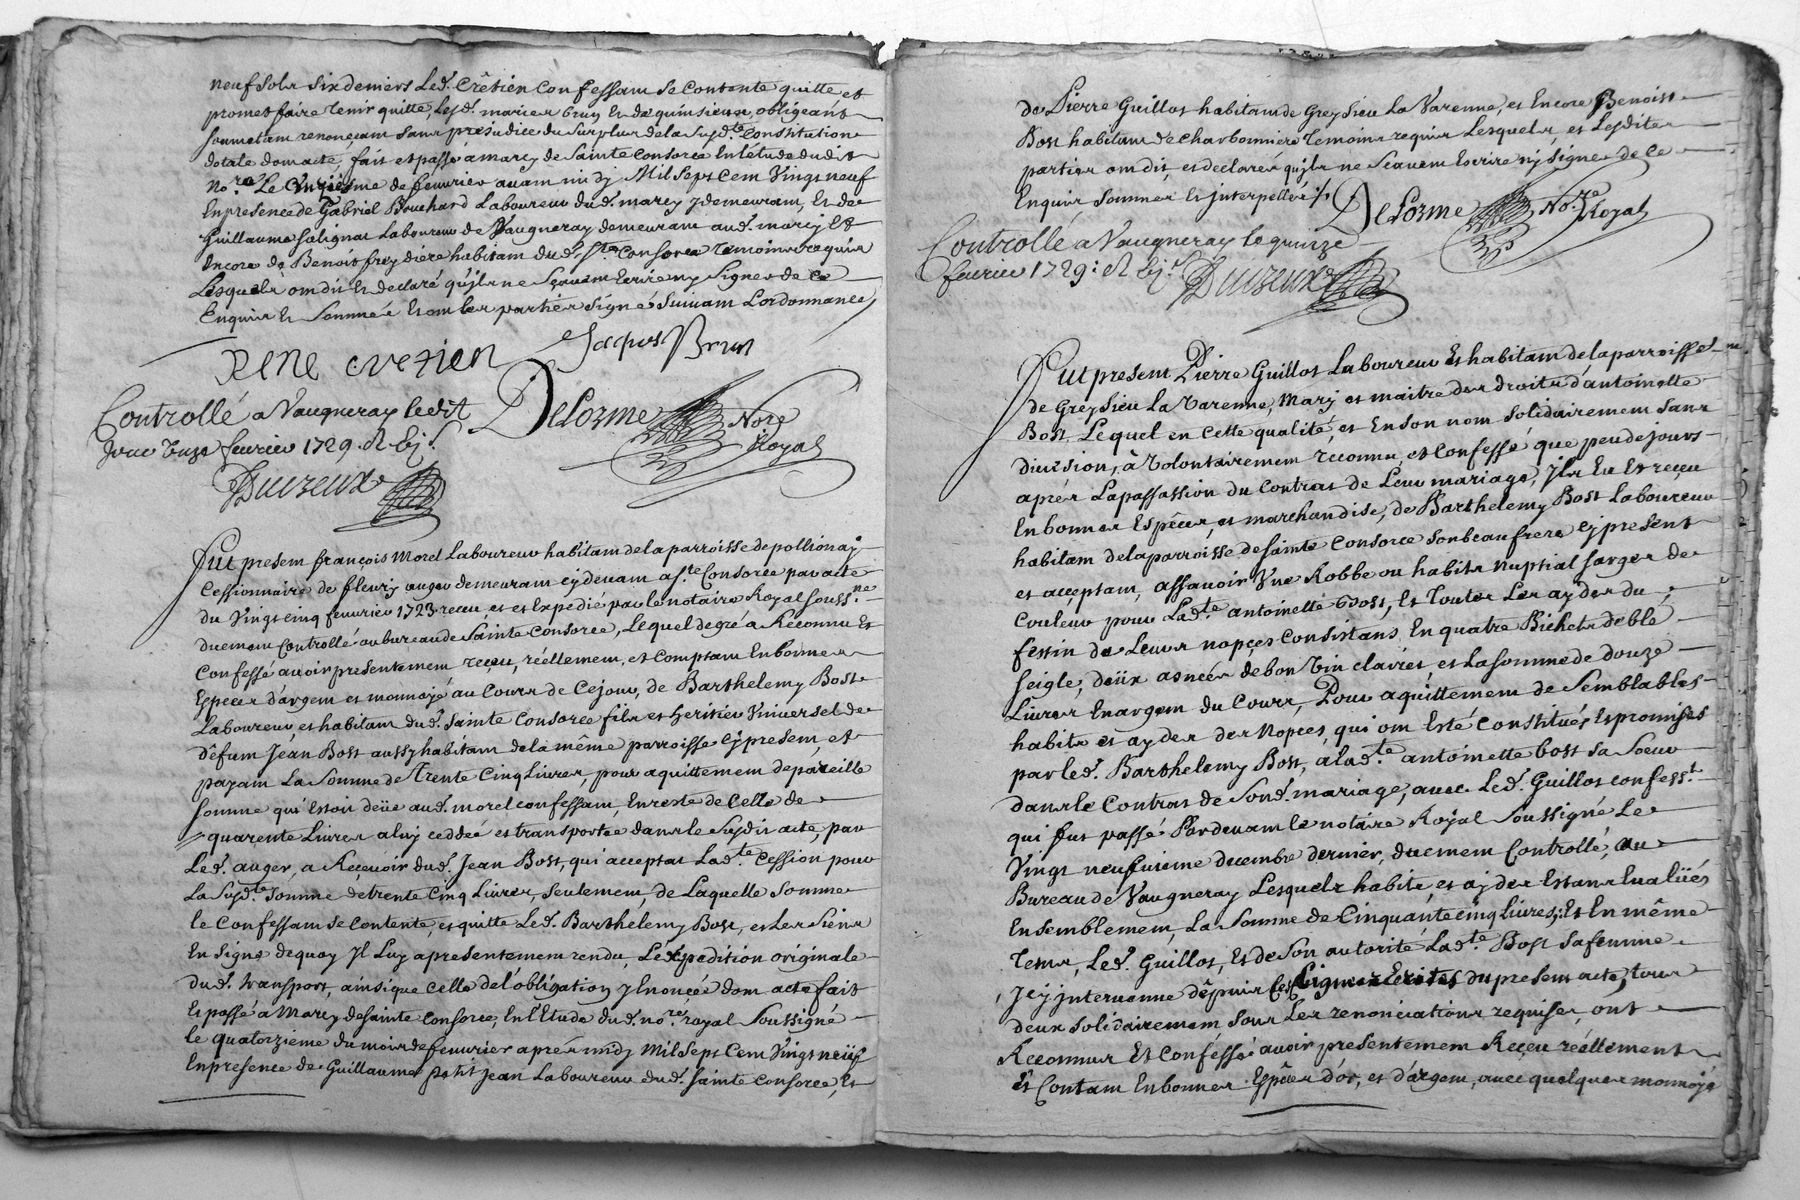 neuf sols six deniers Led. Crêtien Confessant se Contente quitte et
promet faire tenir quitte, Lesd. mariez brun et de quinsieux, obligeant
soumettant renonçant sans préjudice du surplus de la susd.te Constitution
dotale dont acte, fait et passé a marcy de Sainte Consorce En létude dudit
no.re Le onziesme de fevvrier avant midy Mil Sept Cent Vingt neuf
En presence de Gabriel Bouchard Laboureur dud. marcy y demeurant, Et de
Guillaume Solignat Laboureur de Vaugneray demeurant aud. marcy Et
Encore de Benoist freydiere habitant dud. Ste Consorce temoins requis
Lesquels ont dit et declaré quils ne sçavent Ecrire ny Signer de ce
Enquis et sommés et ont les parties signé Suivant Lordonnance
RENE CRETIEN Jacques Brun
Controllé a Vaugneray ledit
jour onze fevrier 1729. R bj s.
Delorme No.re Royal
Duizeux
Fut present françois Morel Laboureur habitant de la parroisse de pollionay
Cessionnaire de fleury auger demeurant cy devant a S.te Consorce par acte
du Vingt cinq fevvrier 1723. receu et et Expedié par le notaire Royal souss.né
duement Controllé au bureau de Sainte Consorce, Lequel de gré a Reconnu Et
Confessé avoir presentement reçeu, réellement, et Comptant En bonnes
Especes d'argent et monnoyé au Cours de Ce jour, de Barthelemy Bost
Laboureur et habitant dud. Sainte Consorce fils et heritier Universel de
défunt Jean Bost aussy habitant de la même parroisse cy present, et
payant La Somme de Trente Cinq Livres, pour aquittement de pareille
somme qui Estoit deüe aud. morel confessant, En reste de Celle de
quarente Livres a luy ceddée et transportée dans le Susdit acte, par
Led. auger, a Reçevoir dud. Jean Bost, qui acceptat Lad.te Cession pour
La Susd.te Somme de trente Cinq Livres, seulement, de Laquelle Somme
le Confessant se Contente, et quitte Led. Barthelemy Bost, et Les Siens
En Signe de quoy Il Luy a presentement rendu, L'Expedition originale
dud. transport, ainsi que Celle de l'obligation y Enoncée dont acte fait
Et passé a Marcy de sainte Consorce, En l'Etude dud. no.re royal Soussigné
le quatorzieme du mois de fevvrier aprés midy Mil Sept Cent Vingt neuf
En presence de Guillaume petit jean Laboureur dud. Sainte Consorce, Et
de Pierre Guillot habitant de Greysieu La Varenne, et Encore Benoist
Bost habitant de Charbonniere temoins requis Lesquels, et Lesdites
parties ont dit, et declarés quils ne Sçavent Escrire ny Signer de Ce
Enquis, sommés Et Interpellés ./.
Delorme No.re Royal
Controllé a Vaugneray le quinze
fevrier 1729: R bj s.
Duizeux
Fut present Pierre Guillot Laboureur Et habitant de la parroisse
de Greysieu La Varenne, Mary et maitre des droits d'antoinette
Bost, Lequel en Cette qualité, et En son nom Solidairement sans
division, à Volontairement reconnu, et Confessé que peu de jours
aprés La passassion du Contrat de Leur mariage, Ils Eu Et reçeu
En bonnes Espèces, et marchandise, de Barthelemy Bost Laboureur
habitant de la parroisse de Sainte Consorce son beaufrere cy present
et acceptant, assavoir Une Robbe ou habits nuptial sarge de
Couleur pour Lad.te antoinette Bost, Et Toutes Les aydes du
festin de Leurs nopces Consistans, En quatre Bichets de blé
seigle, deüx asnées de bon Vin clairet, et La Somme de douze
Livres En argent du Cours, Pour aquittement de Semblables
habits et aydes des Nopces, qui ont Esté Constitués Et promises
par led. Barthelemy Bost, à lad.te antoinette bost sa Soeur
dans le Contrat de Sond. mariage, avec Led. Guillot confess.t
qui fut passé Pardevant le notaire Royal Soussigné Le
Vingt neufvieme decembre dernier, duement Controllé, au
Bureau de Vaugneray Lesquels habits, et aydes Estans Evalüés
Ensemblement, La Somme de Cinquante cinq livres; Et En même
Tems, Led. Guillot, Et de Son autorité Lad.te Bost sa femme
Icy jntervenue dépuis Ces Lignes Ecrites du present acte, tous
deux Solidairement, sous Les renonciations requises, ont
Reconnus Et Conféssé avoir presentement Reçeu réellement
Et Contant En bonnes Espèces d'or, et d'argent, avec quelques monnoyé